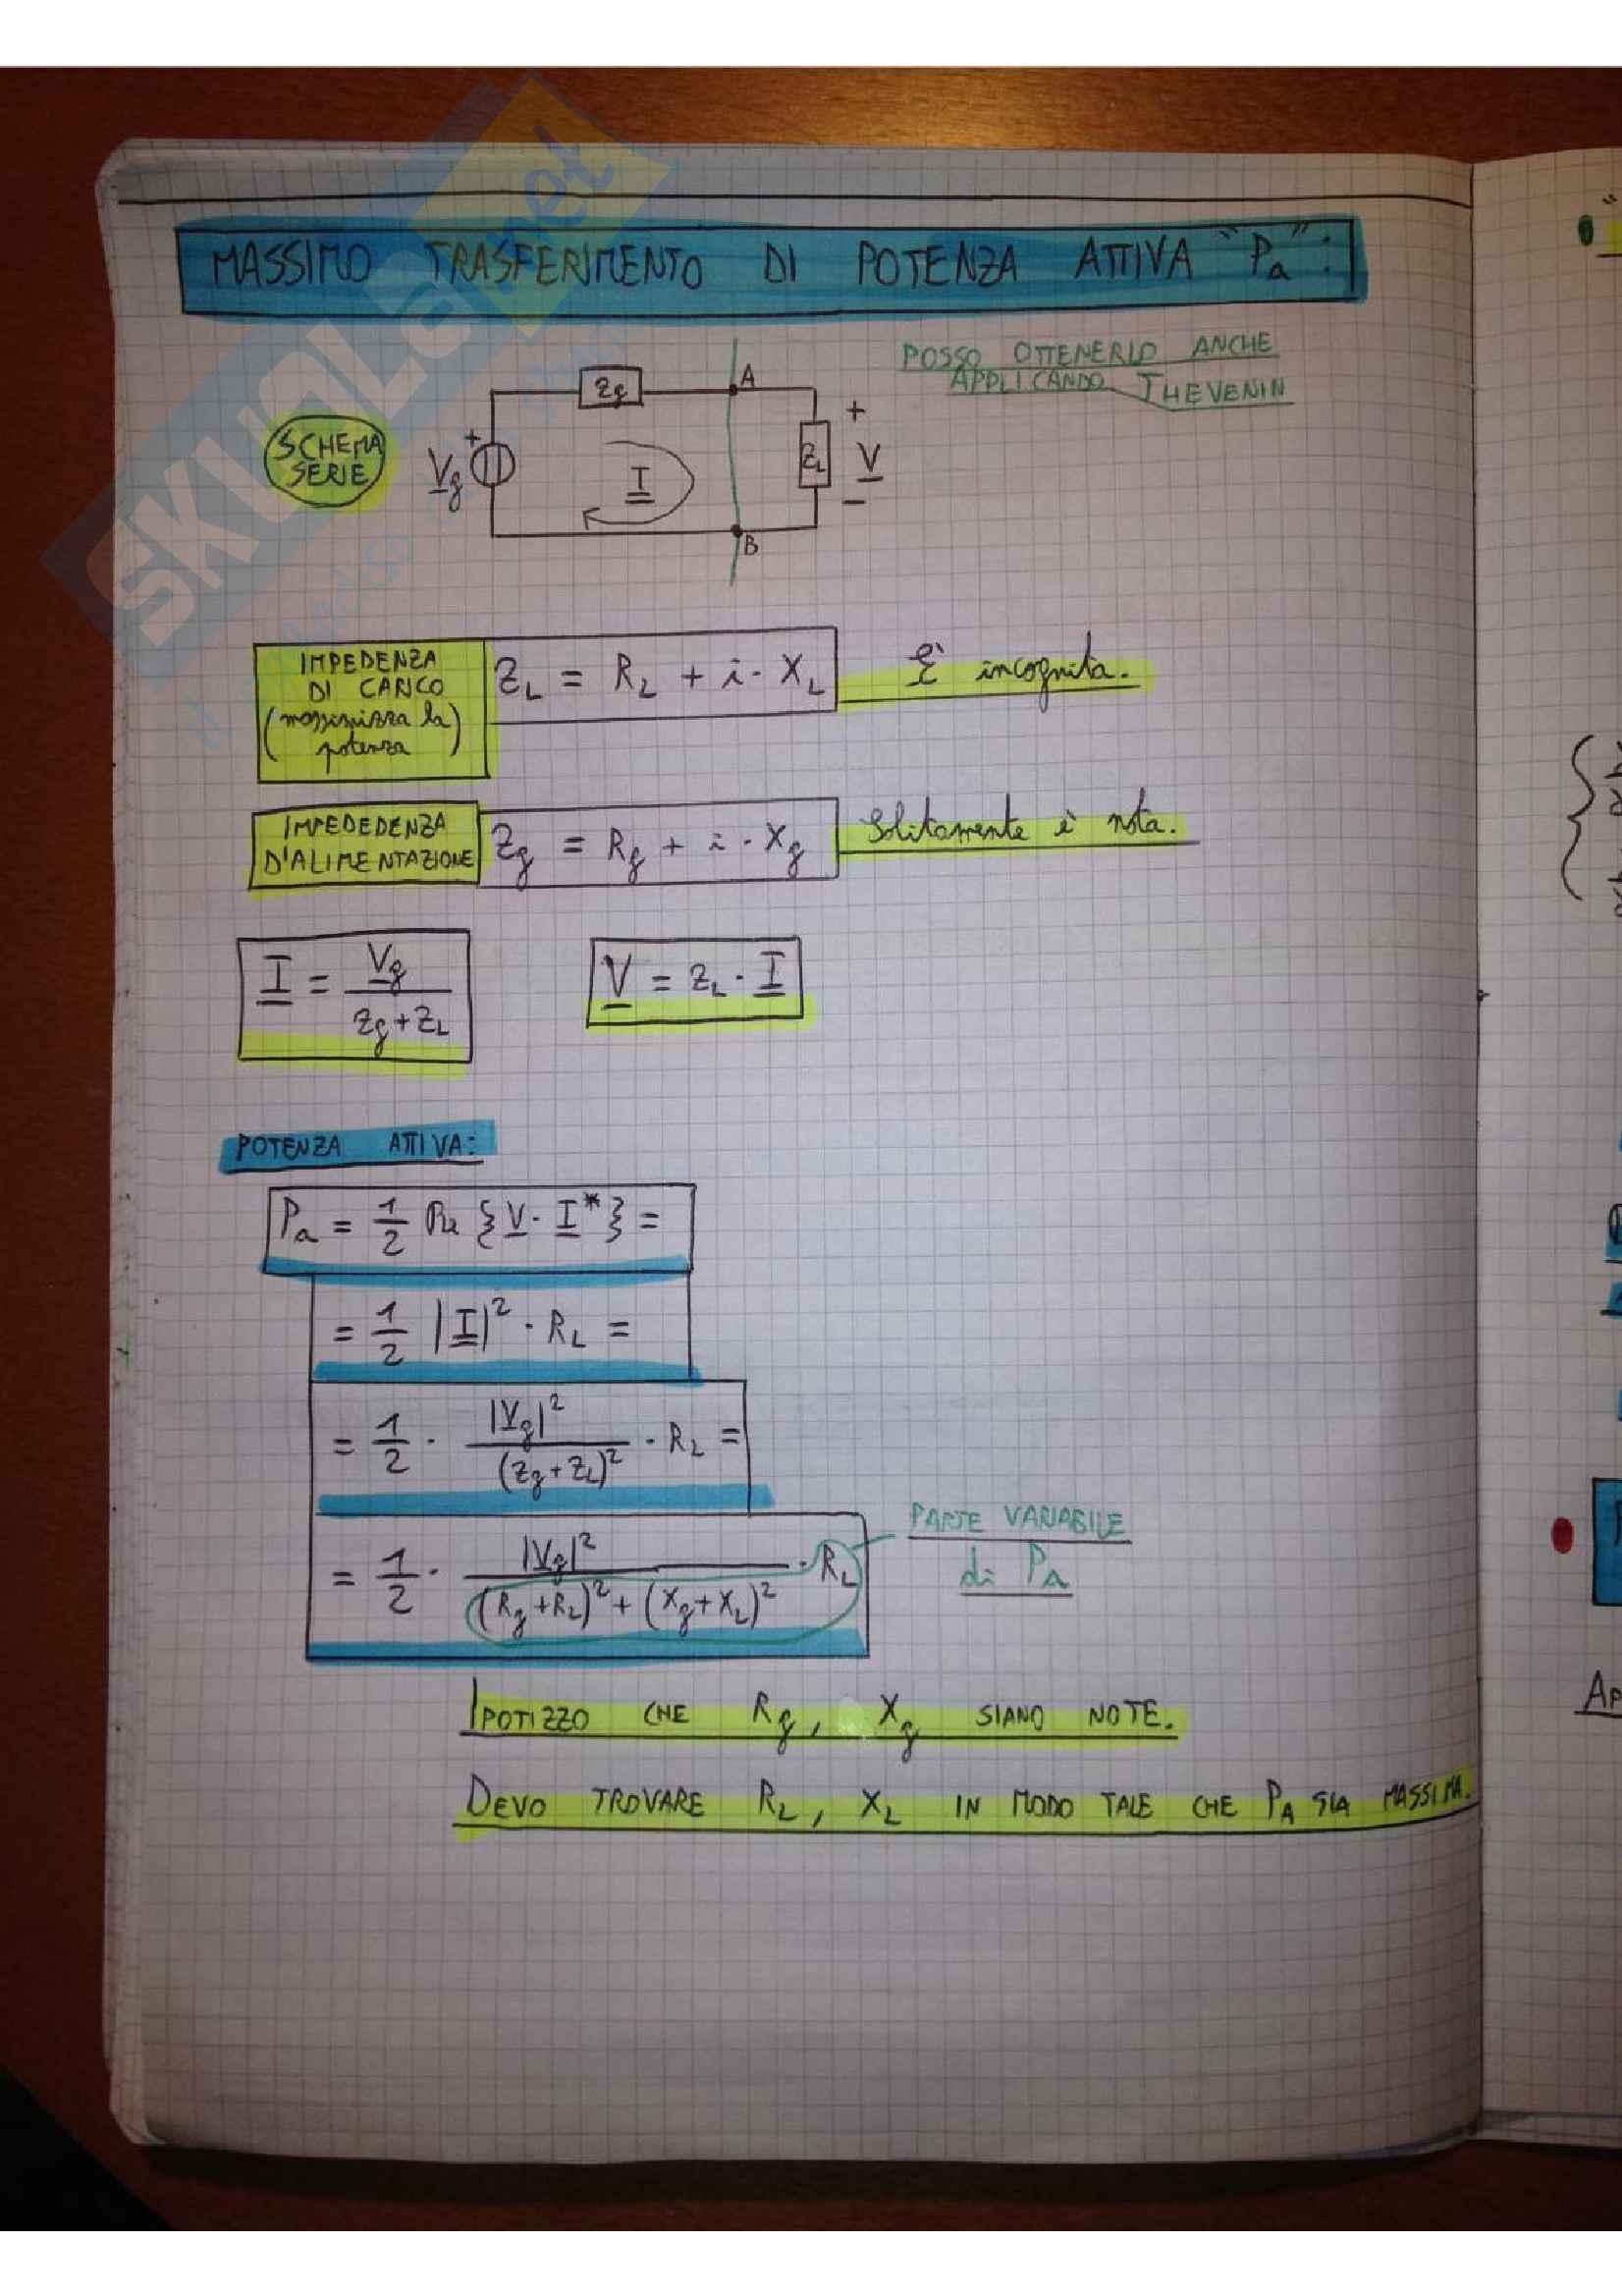 MASSIMO TRASFERIMENTO DI POTENZA ATTIVA "Pa":
POSSO OTTENERLO ANCHE
APPLICANDO THEVENIN
SCHEMA
SERIE
Vg
+
Zg
I
A
B
ZL
+
V
-
IMPEDENZA
DI CARICO
(massimizza la
potenza)
ZL = RL + i · XL
È incognita.
IMPEDEDENZA
D'ALIMENTAZIONE
Zg = Rg + i · Xg
Solitamente è nota.
I = Vg / Zg+ZL
V = ZL · I
POTENZA ATTIVA:
Pa = 1/2 Re {V · I*} =
= 1/2 |I|² · RL =
= 1/2 · |Vg|² / (Zg+ZL)² · RL =
= 1/2 · |Vg|² / (Rg+RL)² + (Xg+XL)² · RL
PARTE VARIABILE
di Pa
IPOTIZZO CHE Rg, Xg SIANO NOTE.
DEVO TROVARE RL, XL IN MODO TALE CHE PA SIA MASSIMA.
SKUOLA.net